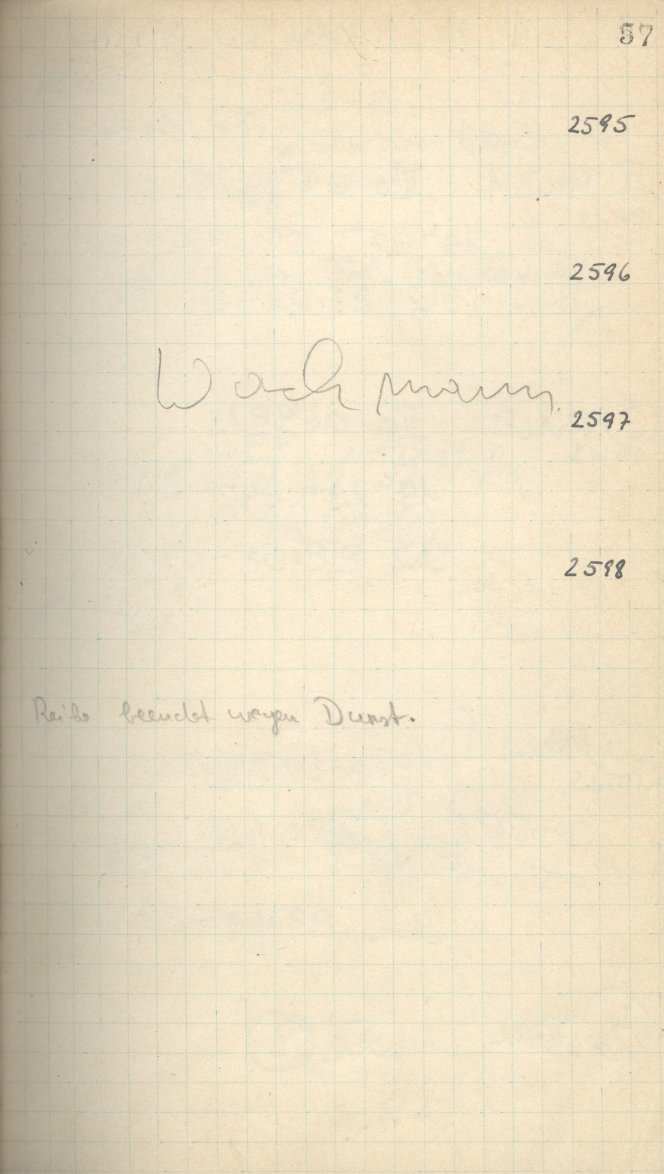 57
2595
2596
Wachmann
2597
2598
Reihe beendet wegen Durst.